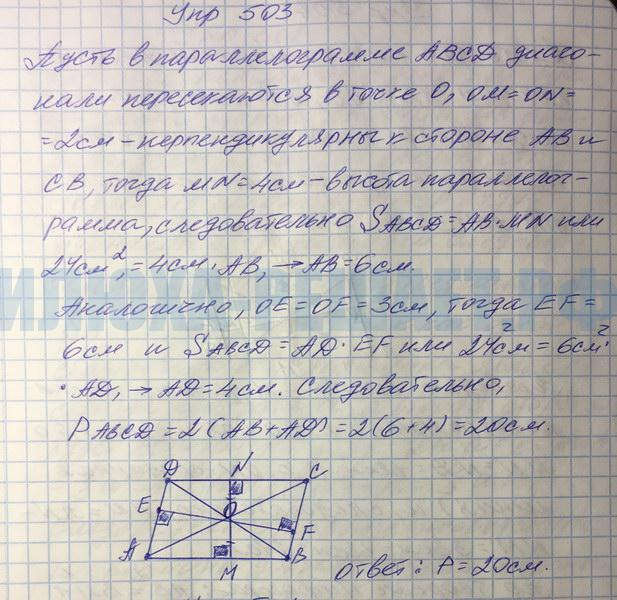 Упр 503
Пусть в параллелограмме ABCD диаго-
нали пересекаются в точке O, OM=ON=
=2см – перпендикулярны к стороне AB и
CB, тогда MN=4см – высота параллелог-
рамма, следовательно SABCD=AB·MN или
24см², =4см·AB, → AB=6см.
Аналогично, OE=OF=3см, тогда EF=
6см и SABCD=AD·EF или 24см²=6см²·
·AD, → AD=4см. Следовательно,
PABCD=2(AB+AD)=2(6+4)=20см.
D N C
E O F
A M B
Ответ: P=20см.